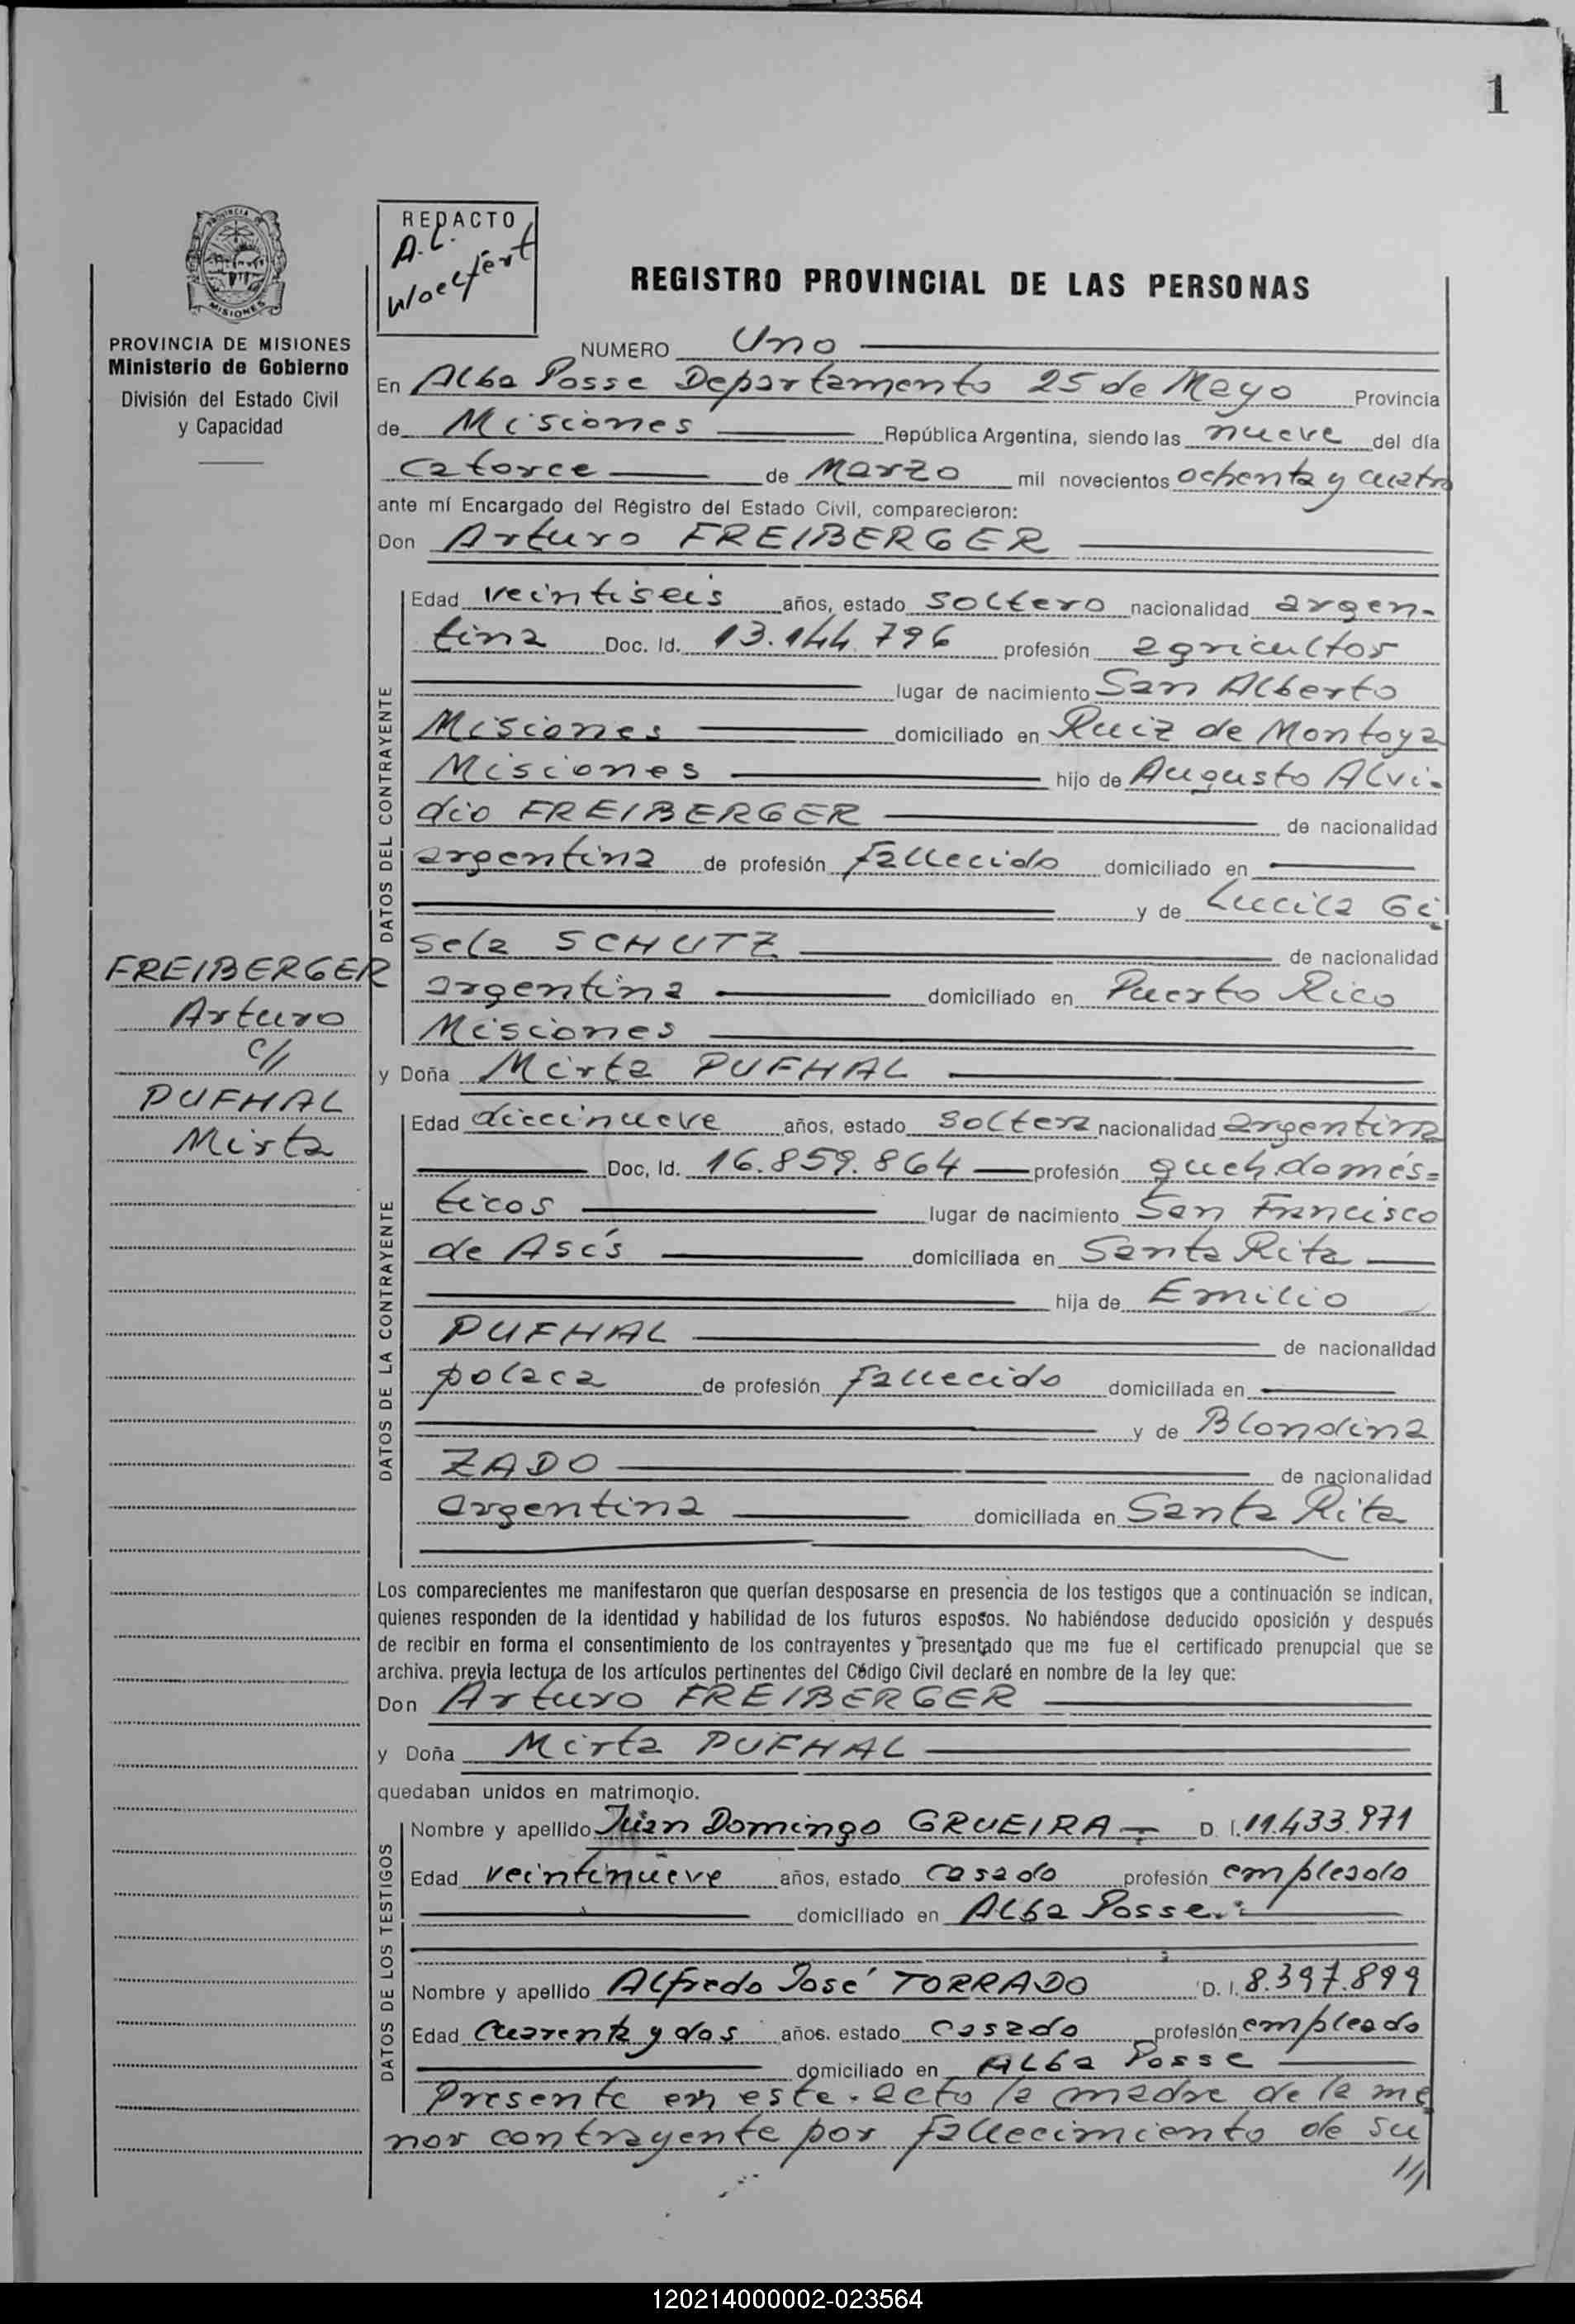 1
REDACTO
A.L.
Woelfert
PROVINCIA DE MISIONES
Ministerio de Gobierno
División del Estado Civil
y Capacidad
REGISTRO PROVINCIAL DE LAS PERSONAS
NUMERO Uno
En Alba Posse Departamento 25 de Mayo Provincia
de Misiones República Argentina, siendo las nueve del día
catorce de Marzo mil novecientos ochenta y cuatro
ante mí Encargado del Registro del Estado Civil, comparecieron:
Don Arturo FREIBERGER
DATOS DEL CONTRAYENTE
Edad veintiseis años, estado soltero nacionalidad argen-
tina Doc. Id. 13.144.796 profesión agricultor
lugar de nacimiento San Alberto
Misiones domiciliado en Ruiz de Montoya
Misiones hijo de Augusto Alvi-
dio FREIBERGER de nacionalidad
argentina de profesión fallecido domiciliado en
y de Lucila Gi
sela SCHUTZ de nacionalidad
argentina domiciliado en Puerto Rico
Misiones
FREIBERGER
Arturo
c/
PUFHAL
Mirta
y Doña Mirta PUFHAL
DATOS DE LA CONTRAYENTE
Edad diecinueve años, estado soltera nacionalidad argentina
Doc, Id. 16.859.864 profesión queh.domés=
ticos lugar de nacimiento San Francisco
de Asís domiciliada en Santa Rita
hija de Emilio
PUFHAL de nacionalidad
polaca de profesión fallecido domiciliada en
y de Blondina
ZADO de nacionalidad
argentina domiciliada en Santa Rita
Los comparecientes me manifestaron que querían desposarse en presencia de los testigos que a continuación se indican,
quienes responden de la identidad y habilidad de los futuros esposos. No habiéndose deducido oposición y después
de recibir en forma el consentimiento de los contrayentes y presentado que me fue el certificado prenupcial que se
archiva. previa lectura de los artículos pertinentes del Código Civil declaré en nombre de la ley que:
Don Arturo FREIBERGER
y Doña Mirta PUFHAL
quedaban unidos en matrimonio.
DATOS DE LOS TESTIGOS
Nombre y apellido Juan Domingo GRUEIRA D. I. 11.433.971
Edad veintinueve años, estado casado profesión empleado
domiciliado en Alba Posse.
Nombre y apellido Alfredo José TORRADO D. I. 8.397.899
Edad cuarenta y dos años. estado casado profesión empleado
domiciliado en Alba Posse
Presente en este acto la madre de la me
nor contrayente por fallecimiento de su
///
120214000002-023564